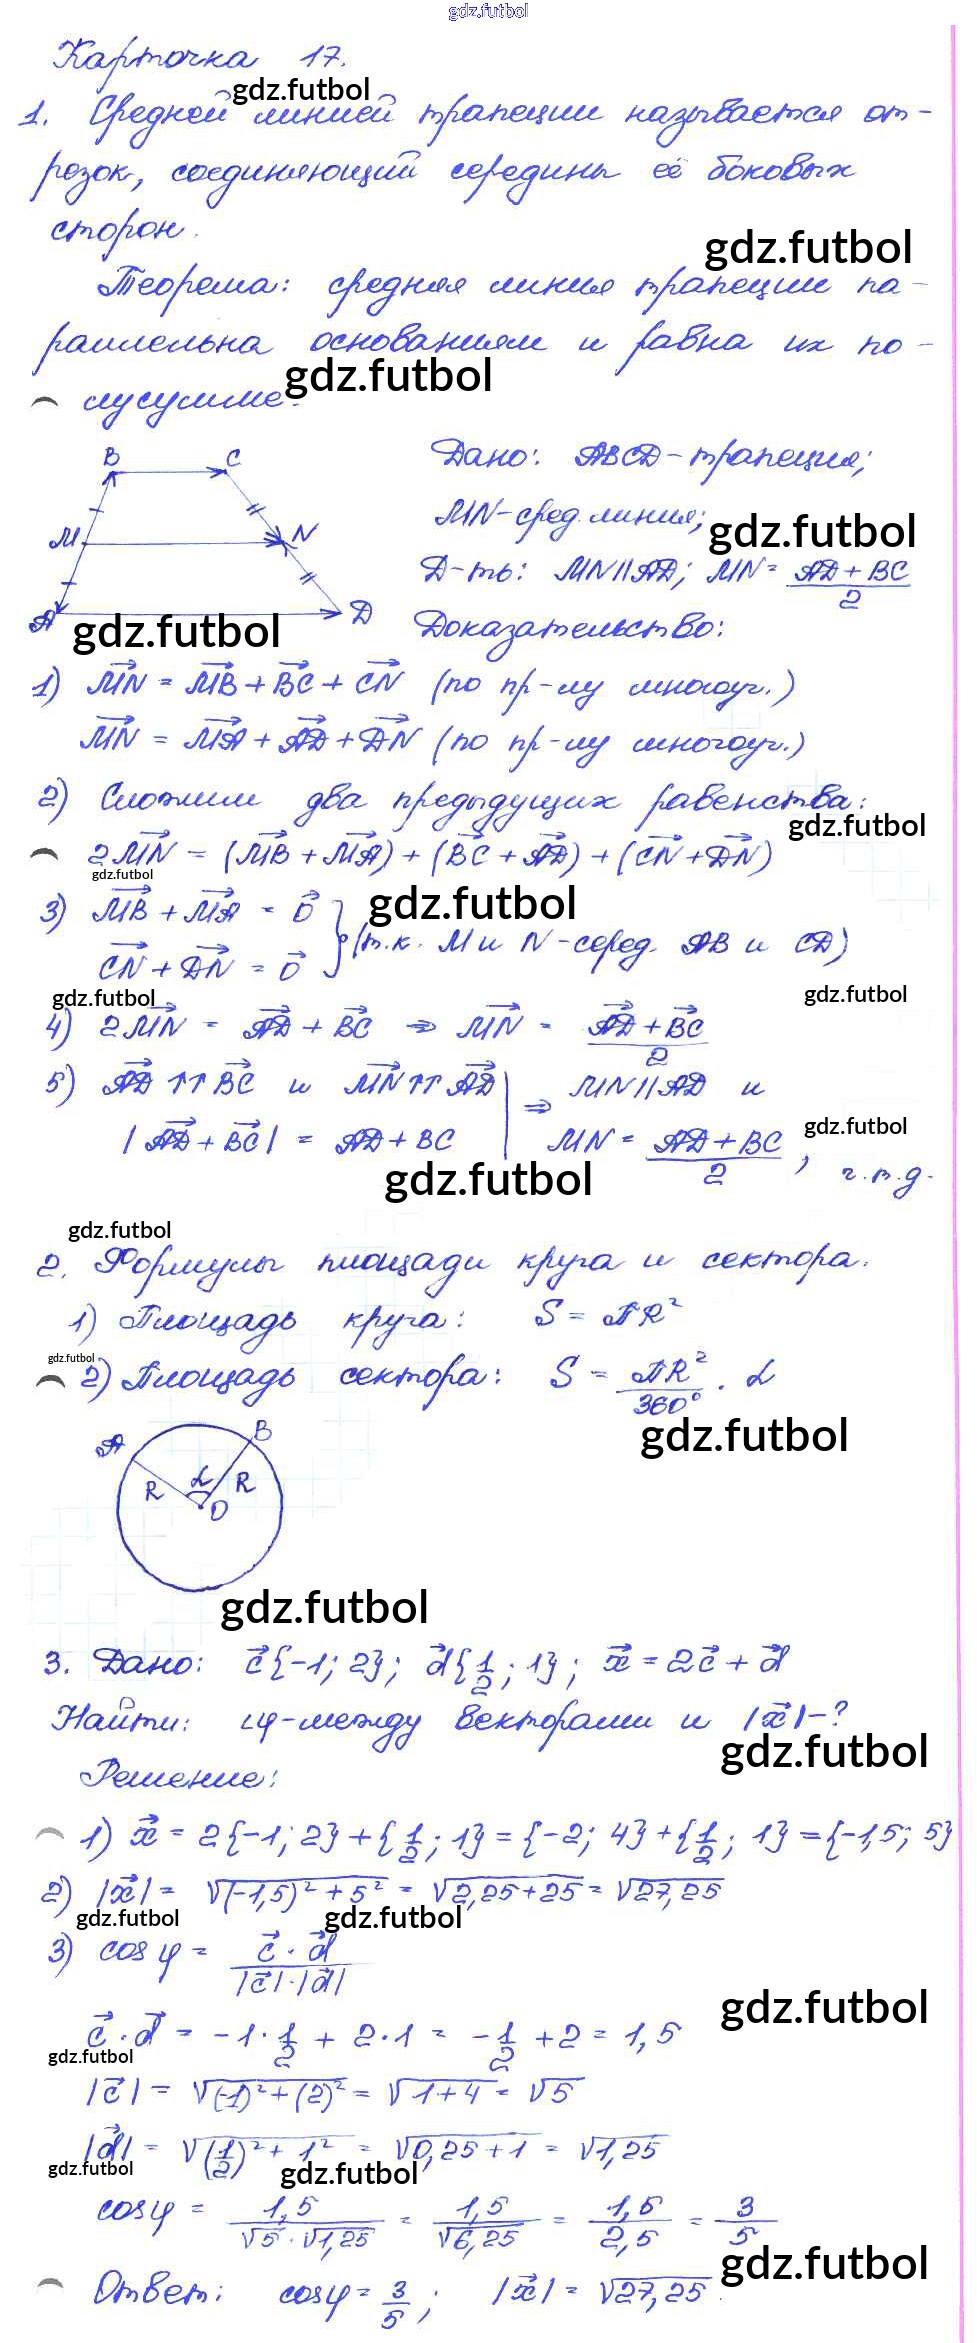 gdz.futbol
Карточка 17.
gdz.futbol
1. Средней линией трапеции называется от-
резок, соединяющий середины её боковых
сторон.
gdz.futbol
Теорема: средняя линия трапеции па-
раллельна основаниям и равна их по-
gdz.futbol
лусумме.
B C
Дано: ABCD - трапеция;
M N
MN - сред. линия;
gdz.futbol
Д-ть: MN || AD; MN = (AD + BC)/2
A D
gdz.futbol
Доказательство:
1) →MN = →MB + →BC + →CN (по пр-лу многоуг.)
→MN = →MA + →AD + →DN (по пр-лу многоуг.)
2) Сложим два предыдущих равенства:
gdz.futbol
2→MN = (→MB + →MA) + (→BC + →AD) + (→CN + →DN)
gdz.futbol
3) →MB + →MA = →0
gdz.futbol
→CN + →DN = →0 } (т.к. M и N - серед. AB и CD)
gdz.futbol
gdz.futbol
4) 2→MN = →AD + →BC ⇒ →MN = (→AD + →BC)/2
5) →AD ↑↑ →BC и →MN ↑↑ →AD | ⇒ MN || AD и
gdz.futbol
|→AD + →BC| = AD + BC | MN = (AD + BC)/2, ч.т.д.
gdz.futbol
gdz.futbol
2. Формулы площади круга и сектора.
1) Площадь круга: S = πR²
gdz.futbol
2) Площадь сектора: S = πR²/360° · α
gdz.futbol
A B
R α R
O
gdz.futbol
3. Дано: →c{-1; 2}; →d{1/2; 1}; →x = 2→c + →d
Найти: ∠φ - между векторами и |→x| - ?
gdz.futbol
Решение:
1) →x = 2{-1; 2} + {1/2; 1} = {-2; 4} + {1/2; 1} = {-1,5; 5}
2) |→x| = √((-1,5)² + 5²) = √(2,25 + 25) = √27,25
gdz.futbol gdz.futbol
3) cos φ = (→c · →d)/(|→c| · |→d|)
gdz.futbol
→c · →d = -1 · 1/2 + 2 · 1 = -1/2 + 2 = 1,5
gdz.futbol
|→c| = √((-1)² + (2)²) = √(1 + 4) = √5
|→d| = √((1/2)² + 1²) = √(0,25 + 1) = √1,25
gdz.futbol gdz.futbol
cos φ = 1,5/(√5 · √1,25) = 1,5/√6,25 = 1,5/2,5 = 3/5
gdz.futbol
Ответ: cos φ = 3/5; |→x| = √27,25.